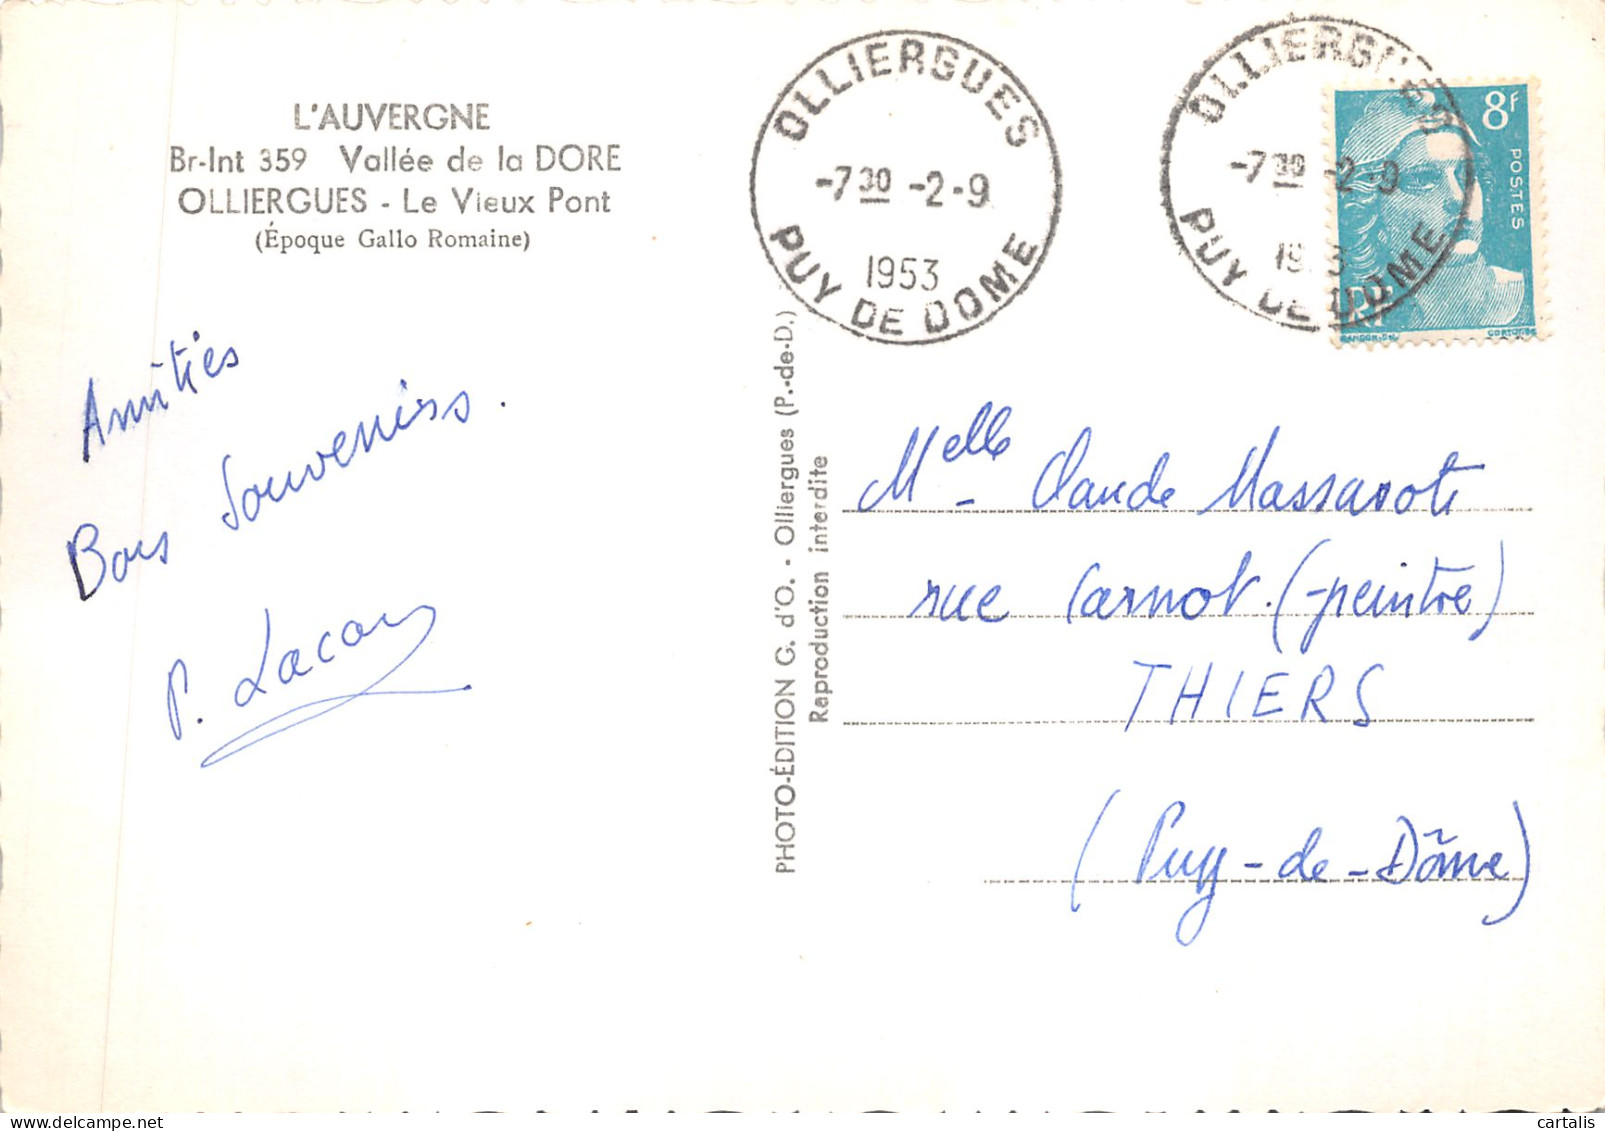 L'AUVERGNE
Br-Int 359 Vallée de la DORE
OLLIERGUES - Le Vieux Pont
(Époque Gallo Romaine)
Amitiés
Bons Souvenirs.
P. Lacour
PHOTO-ÉDITION G. d'O. - Olliergues (P.-de-D.)
Raproduction interdite
OLLIERGUES
-7 30 -2-9
1953
PUY DE DOME
OLLIERGUES
-7 30 -2-9
1953
PUY DE DOME
8f
POSTES
RF
GANDON-DEL
CORTOT-SC
Melle Claude Massarote
rue Carnot. (peintre)
THIERS
(Puy-de-Dôme)
cartalis